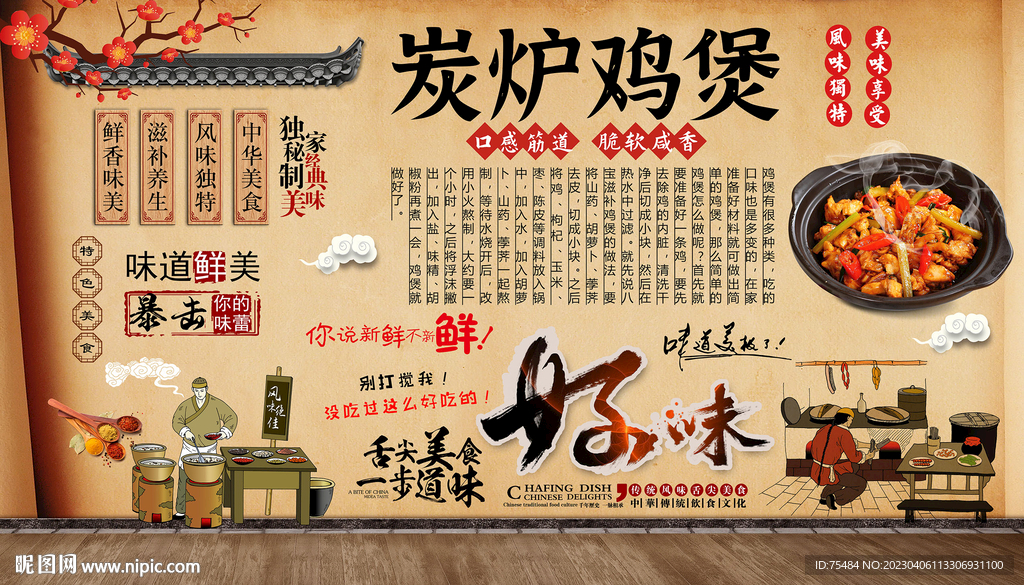 炭炉鸡煲
風味獨特
美味享受
口感筋道 脆软咸香
中华美食
风味独特
滋补养生
鲜香味美
独家秘制
经典美味
鸡煲有很多种类，吃的
口味也是多变的，在家
准备好材料就可做出简
单的鸡煲，那么简单的
鸡煲怎么做呢？首先就
要准备好一条鸡，要先
去除鸡的内脏，清洗干
净后切成小块，然后在
热水中过滤。就先说八
宝滋补鸡煲的做法，要
将山药、胡萝卜、荸荠
去皮，切成小块。之后
将鸡、枸杞、玉米、
枣、陈皮等调料放入锅
中，加入水，加入胡萝
卜、山药、荸荠一起熬
制，等待水烧开后，改
用小火熬制，大约要一
个小时，之后将浮沫撇
出，加入盐、味精、胡
椒粉再煮一会，鸡煲就
做好了。
特色美食
味道鲜美
暴击你的味蕾
你说新鲜不新鲜！
味道美极了！
别打搅我！
没吃过这么好吃的！
好味
风味绝佳
舌尖美食
一步道味
A BITE OF CHINA
MIDIA TASTE
CHAFING DISH
CHINESE DELIGHTS
Chinese traditional food culture 千年歷史 一脉相承
传统风味舌尖美食
中華傳統飲食文化
昵图网 www.nipic.com
ID:75484 NO:20230406113306931100